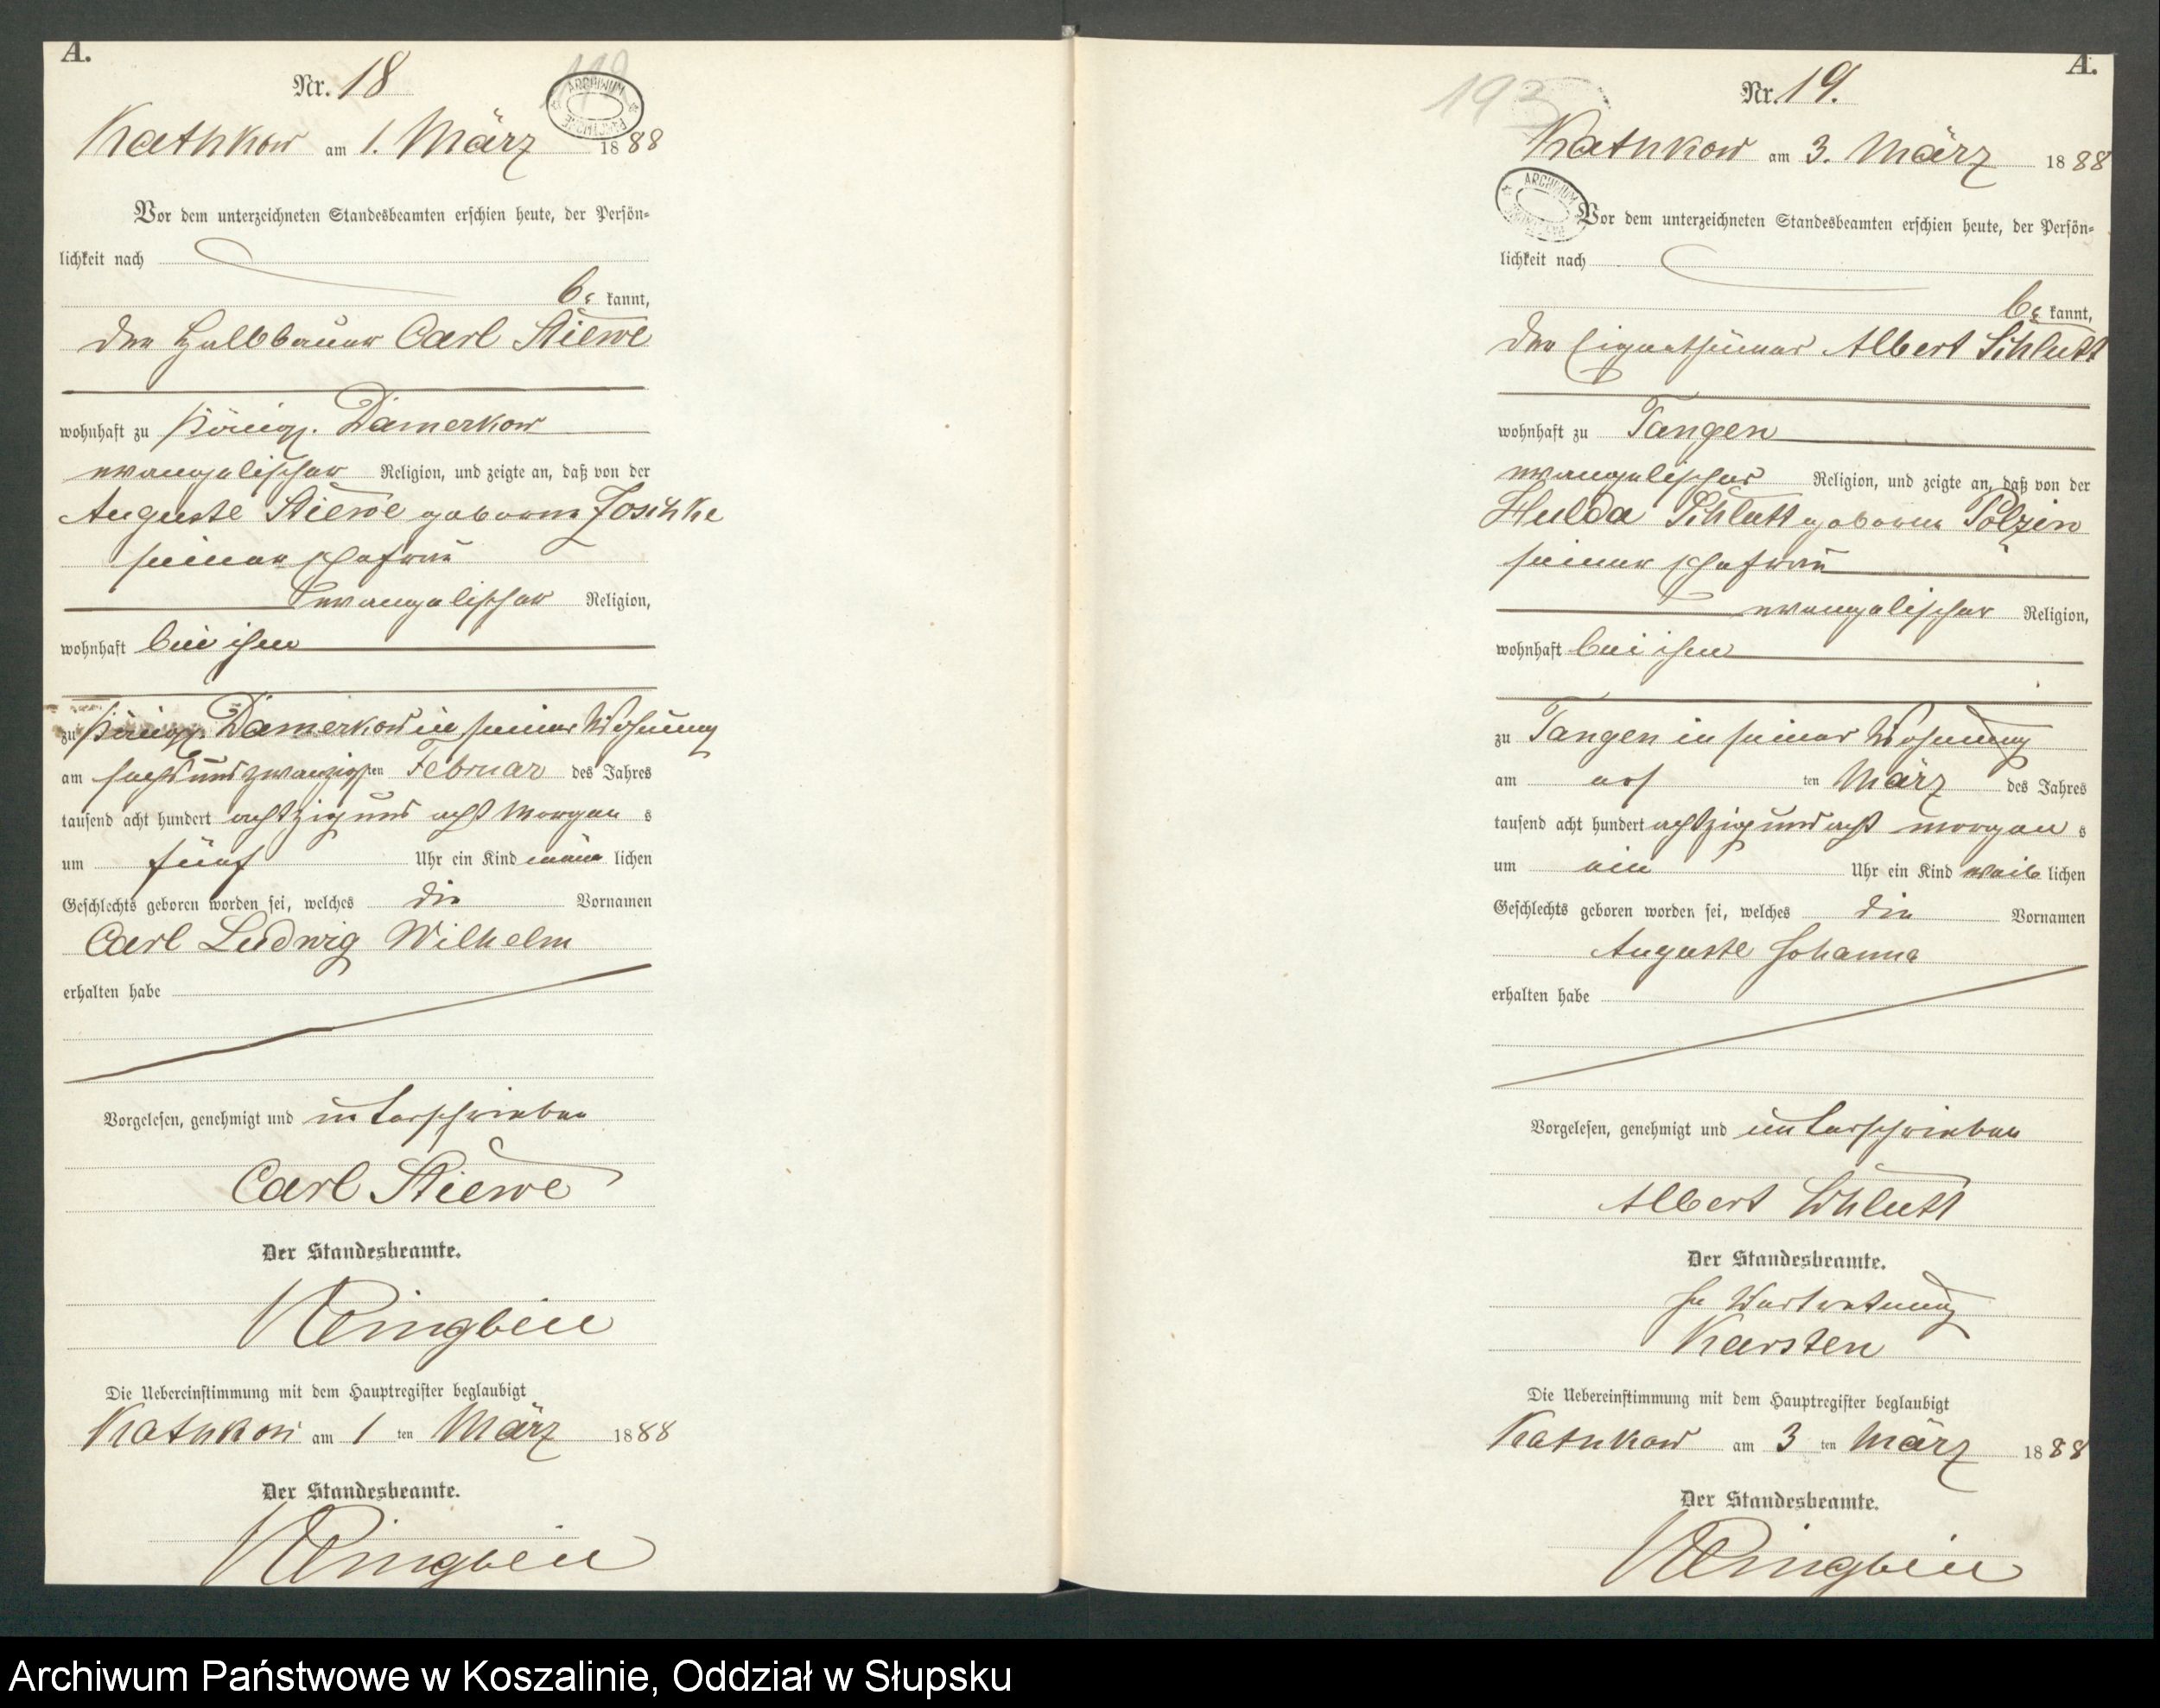 A.
Nr. 18
Kathkow am 1. März 1888
Vor dem unterzeichneten Standesbeamten erschien heute, der Persön-
lichkeit nach
be kannt,
der Halbbauer Carl Stiewe
wohnhaft zu Königl. Damerkow
evangelischer Religion, und zeigte an, daß von der
Auguste Stiewe geborene Joschke
seiner Ehefrau
evangelischer Religion,
wohnhaft bei ihm
zu Königl. Damerkow in seiner Wohnung
am sechs und zwanzigsten Februar des Jahres
tausend acht hundert achtzig und acht Morgens
um fünf Uhr ein Kind männlichen
Geschlechts geboren worden sei, welches die Vornamen
Carl Ludwig Wilhelm
erhalten habe
Vorgelesen, genehmigt und unterschrieben
Carl Stiewe
Der Standesbeamte.
Die Uebereinstimmung mit dem Hauptregister beglaubigt
Kathkow am 1 ten März 1888
Der Standesbeamte.
A.
193
Nr. 19.
Kathkow am 3. März 1888
ARCHIWUM
Vor dem unterzeichneten Standesbeamten erschien heute, der Persön-
lichkeit nach
be kannt,
der Eigenthümer Albert Schlutt
wohnhaft zu Tangen
evangelischer Religion, und zeigte an, daß von der
Hulda Schlutt geborene Polzin
seiner Ehefrau
evangelischer Religion,
wohnhaft bei ihm
zu Tangen in seiner Wohnung
am ersten März des Jahres
tausend acht hundert achtzig und acht morgens
um ein Uhr ein Kind weiblichen
Geschlechts geboren worden sei, welches die Vornamen
Auguste Johanna
erhalten habe
Vorgelesen, genehmigt und unterschrieben
Albert Schlutt
Der Standesbeamte.
In Vertretung
Karsten
Die Uebereinstimmung mit dem Hauptregister beglaubigt
Kathkow am 3 ten März 1888
Der Standesbeamte.
Archiwum Państwowe w Koszalinie, Oddział w Słupsku